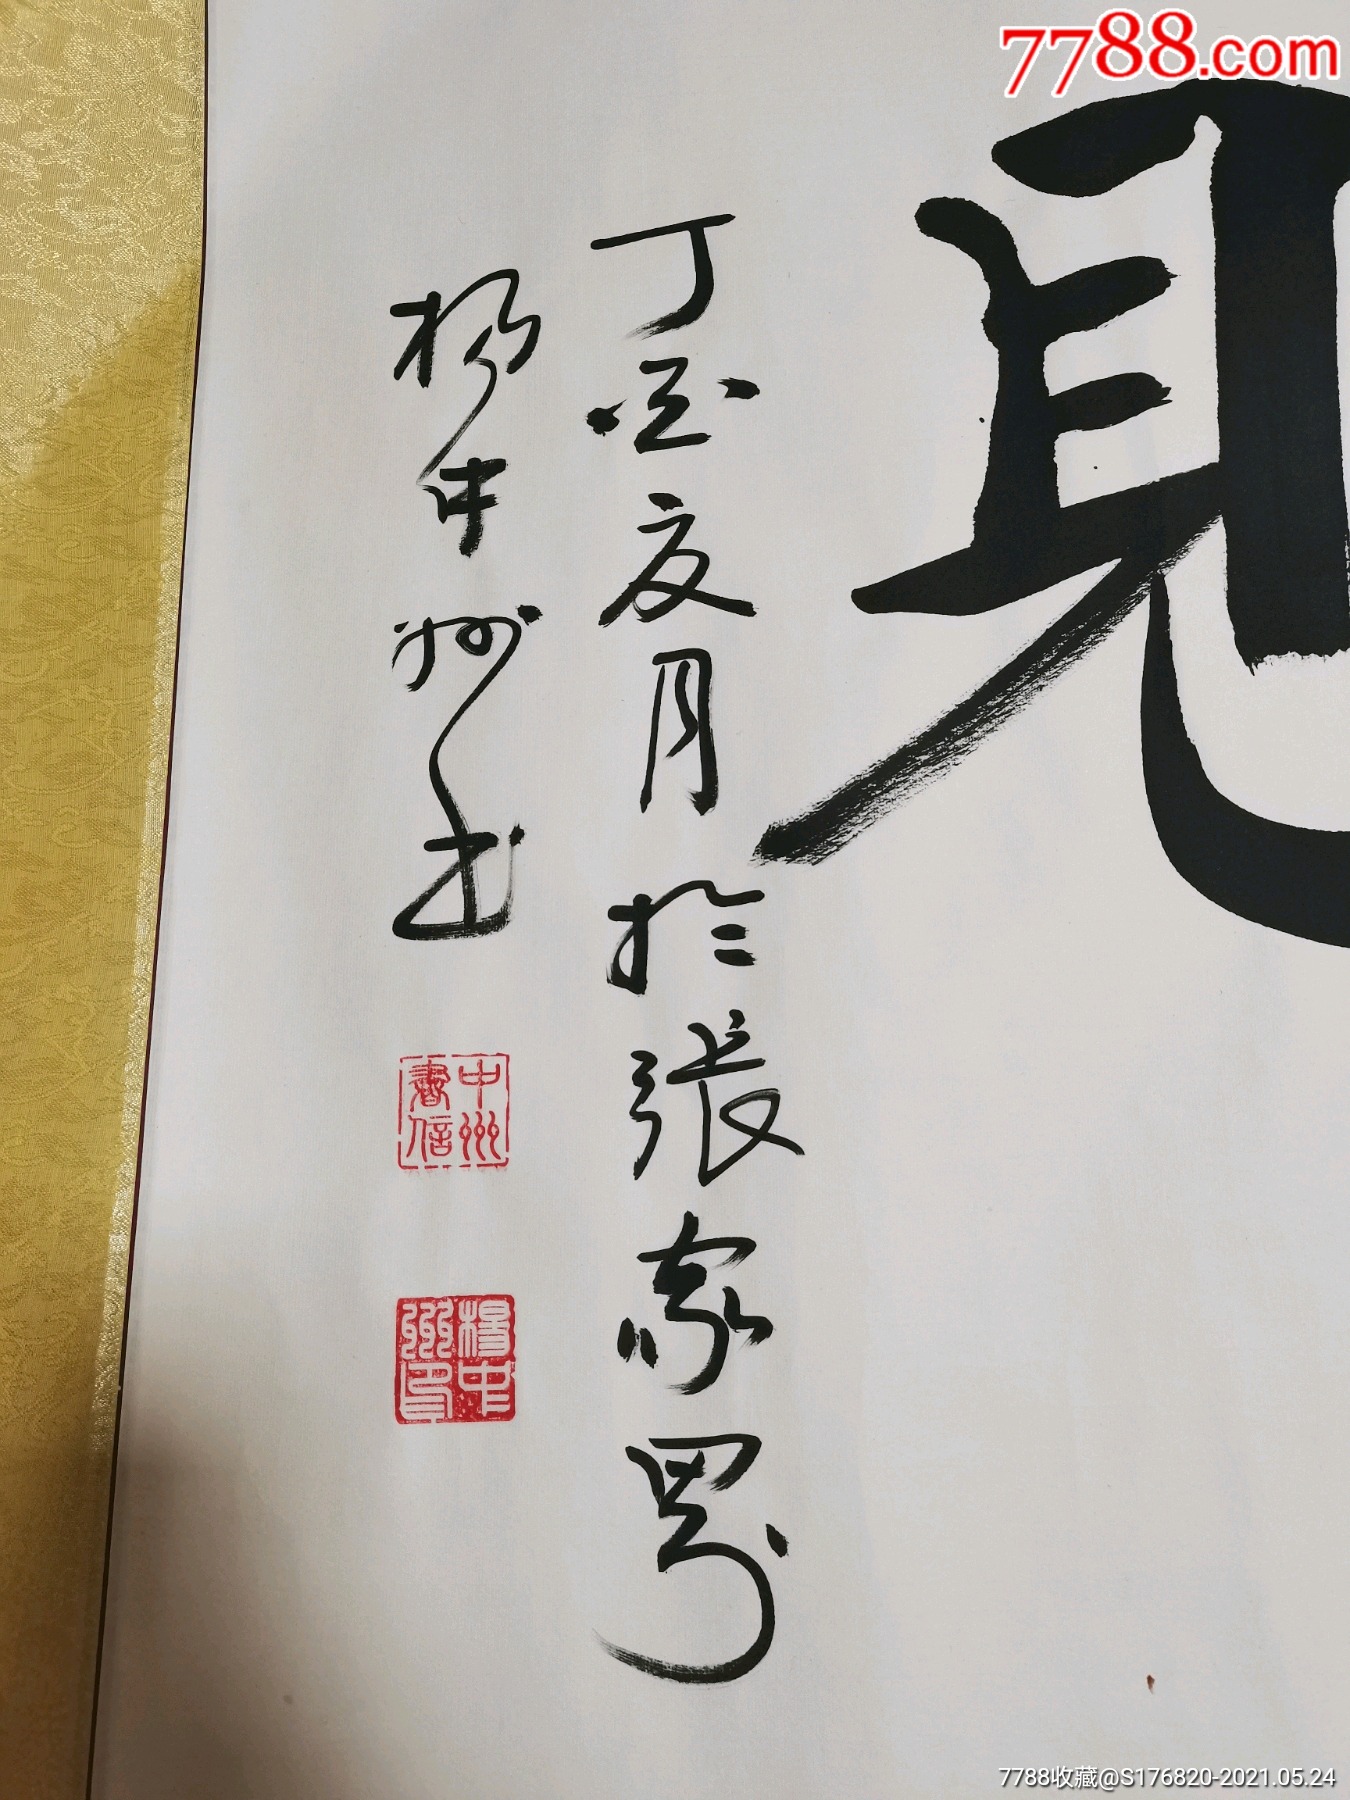 7788.com
丁酉夏月於張家界
杨中州书
中州書信
楊中州印
7788收藏@S176820-2021.05.24